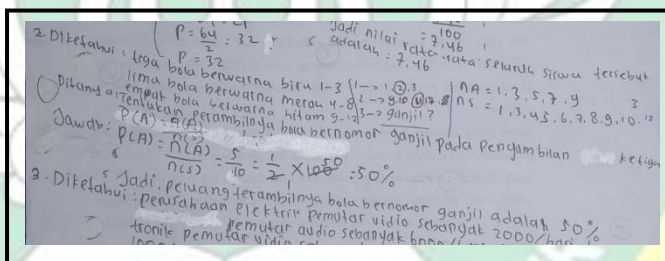 P = 64/2 = 32
P = 32
100
= 7,46
Jadi nilai rata-rata seluruh siswa tersebut
adalah = 7,46
2. Diketahui : tiga bola berwarna biru 1-3
lima bola berwarna merah 4-8
empat bola berwarna hitam 9-12
1 → 1.②.3
2 → 9.10
3 → ganjil?
nA = 1.3.5.7.9
nS = 1.3.4.5.6.7.8.9.10.12
3
Ditanya : Tentukan perambilnya bola bernomor ganjil pada pengambilan ketiga
Jawab : P(A) =
P(A) = n(A)/n(S) = 5/10 = 1/2 × 100 50 = 50%
Jadi, peluang terambilnya bola bernomor ganjil adalah 50%
3. Diketahui : perusahaan elektrik pemutar vidio sebanyak 2000/hari
pemutar audio sebanyak 6000
tronik pemutar vidio